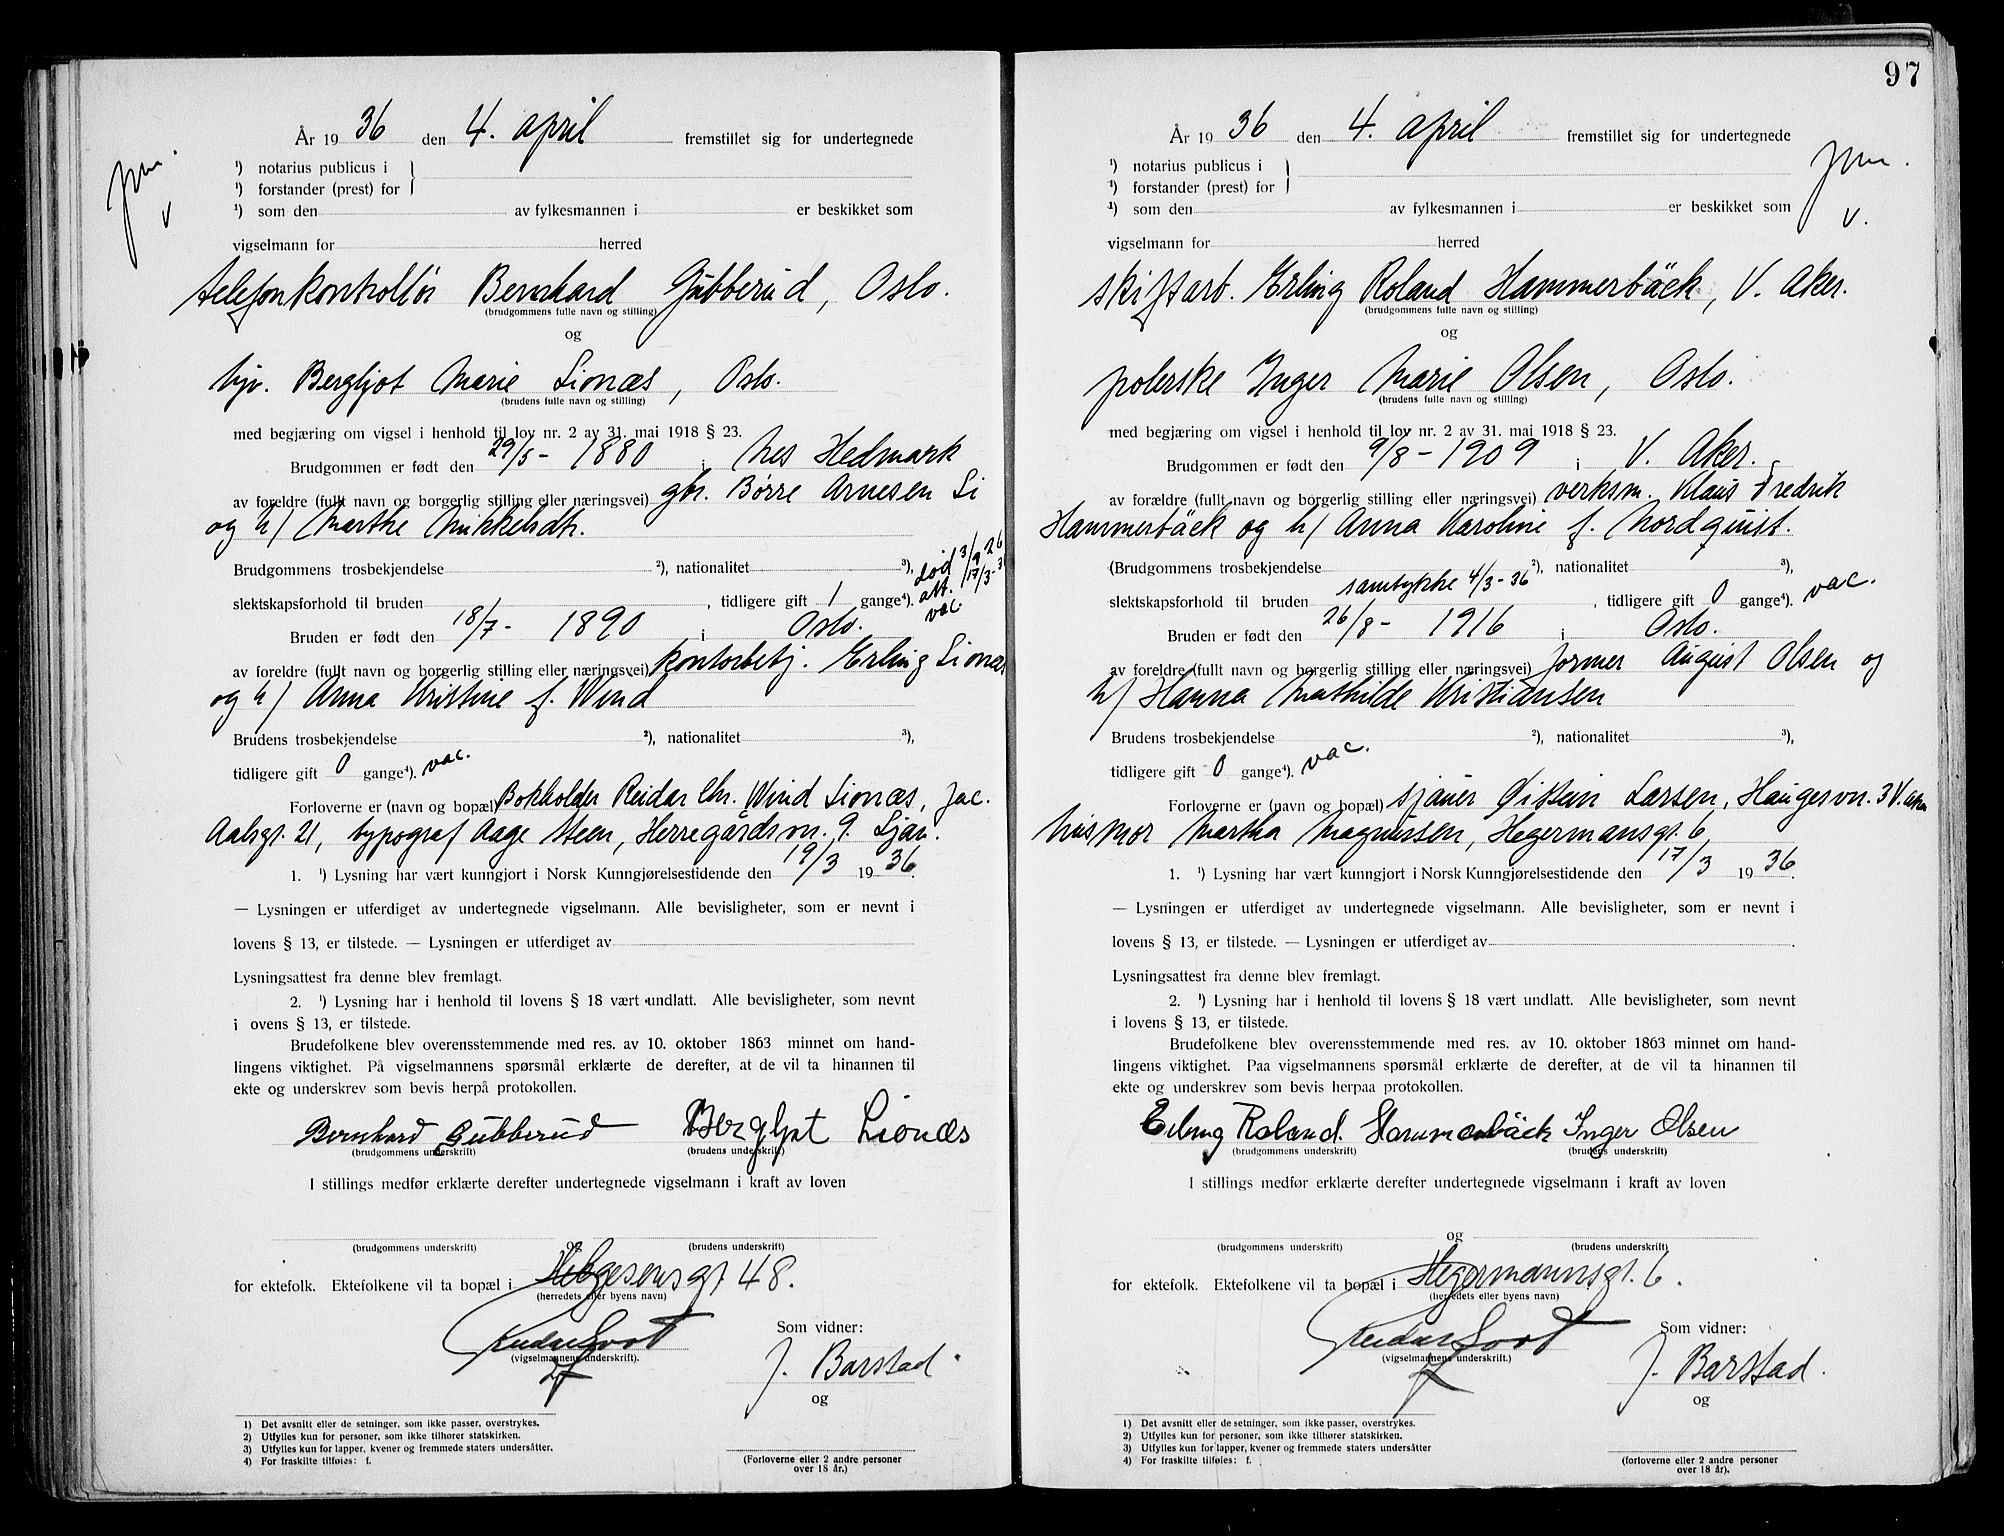 År 1936 den 4. april fremstillet sig for undertegnede
¹) notarius publicus i
¹) forstander (prest) for
¹) som den av fylkesmannen i er beskikket som
vigselmann for herred
telefonkontrollör Bernhard Gubberud, Oslo.
(brudgommens fulle navn og stilling)
og
hjv. Bergljot Marie Lionæs, Oslo.
(brudens fulle navn og stilling)
med begjæring om vigsel i henhold til lov nr. 2 av 31. mai 1918 § 23.
Brudgommen er født den 29/5 - 1880 i Nes Hedmark
av foreldre (fullt navn og borgerlig stilling eller næringsvei) gbr. Børre Arnesen Li
og h/ Marthe Mikkelsdt.
Brudgommens trosbekjendelse ²), nationalitet ³), død 3/9 26
slektskapsforhold til bruden , tidligere gift 1 gange⁴). att. 17/3-3
vac.
Bruden er født den 18/7 - 1890 i Oslo.
av foreldre (fullt navn og borgerlig stilling eller næringsvei) kontorbetj. Erling Lionæs
og h/ Anna Kristine f. Wind
Brudens trosbekjendelse ²), nationalitet ³),
tidligere gift 0 gange⁴). vac.
Forloverne er (navn og bopæl) Bokholder Reidar Chr. Wind Lionæs, Jac.
Aalsgt. 21, typograf Aage Steen, Herregårdsvn. 9. Ljan.
1. ¹) Lysning har vært kunngjort i Norsk Kunngjørelsestidende den 19/3 1936.
— Lysningen er utferdiget av undertegnede vigselmann. Alle bevisligheter, som er nevnt i
lovens § 13, er tilstede. — Lysningen er utferdiget av
Lysningsattest fra denne blev fremlagt.
2. ¹) Lysning har i henhold til lovens § 18 vært undlatt. Alle bevisligheter, som nevnt
i ovens § 13, er tilstede.
Brudefolkene blev overensstemmende med res. av 10. oktober 1863 minnet om hand-
lingens viktighet. På vigselmannens spørsmål erklærte de derefter, at de vil ta hinannen til
ekte og underskrev som bevis herpå protokollen.
Bernhard Gubberud Bergljot Lionæs
(brudgommens underskrift) (brudens underskrift)
I stillings medfør erklærte derefter undertegnede vigselmann i kraft av loven
og
(brudgommens underskrift) (brudens underskrift)
for ektefolk. Ektefolkene vil ta bopæl i Helgesensgt 48.
(herredets eller byens navn)
Som vidner:
(vigselmannens underskrift).
J. Barstad.
og
1) Det avsnitt eller de setninger, som ikke passer, overstrykes.
2) Utfylles kun for personer, som ikke tilhører statskirken.
3) Utfylles kun for lapper, kvener og fremmede staters undersåtter.
4) For fraskilte tilføies: f.
(Forloverne eller 2 andre personer
over 18 år.)
97
År 1936 den 4. april fremstillet sig for undertegnede
¹) notarius publicus i
¹) forstander (prest) for
¹) som den av fylkesmannen i er beskikket som
vigselmann for herred
skiftarb. Erling Roland Hammerbäck, V. Aker.
(brudgommens fulle navn og stilling)
og
polerske Inger Marie Olsen, Oslo.
(brudens fulle navn og stilling)
med begjæring om vigsel i henhold til lov nr. 2 av 31. mai 1918 § 23.
Brudgommen er født den 9/8 - 1909 i V. Aker.
av forældre (fullt navn og borgerlig stilling eller næringsvei) verksm. Klaus Fredrik
Hammerbäck og h/ Anna Karoline f. Nordquist.
(Brudgommens trosbekjendelse ²), nationalitet ³),
samtykke 4/3-36
slektskapsforhold til bruden , tidligere gift 0 gange⁴). vac.
Bruden er født den 26/8 - 1916 i Oslo.
av foreldre (fullt navn og borgerlig stilling eller næringsvei) former August Olsen og
h/ Hanna Mathilde Kristiansen
Brudens trosbekjendelse ²), nationalitet ³),
tidligere gift 0 gange⁴). vac.
Forloverne er (navn og bopæl) sjauer Øistein Larsen, Haugesvn. 3 V. Aker
husmor Martha Magnussen, Hegermansgt. 6
1. ¹) Lysning har vært kunngjort i Norsk Kunngjørelsestidende den 17/3 1936.
— Lysningen er utferdiget av undertegnede vigselmann. Alle bevisligheter, som er nevnt i
lovens § 13, er tilstede. — Lysningen er utferdiget av .
Lysningsattest fra denne blev fremlagt.
2. ¹) Lysning har i henhold til lovens § 18 vært undlatt. Alle bevisligheter, som nevnt
i lovens § 13, er tilstede.
Brudefolkene blev overensstemmende med res. av 10. oktober 1863 minnet om hand-
lingens viktighet. Paa vigselmannens spørsmål erklærte de derefter, at de vil ta hinannen til
ekte og underskrev som bevis herpaa protokollen.
Erling Roland. Hammerbäck Inger Olsen
(brudgommens underskrift) (brudens underskrift)
I stillings medfør erklærte derefter undertegnede vigselmann i kraft av loven
og
(brudgommens underskrift) (brudens underskrift)
for ektefolk. Ektefolkene vil ta bopæl i Hegermannsgt. 6.
(herredets eller byens navn)
Som vidner:
(vigselmannens underskrift.)
J. Barstad.
og
1) Det avsnitt eller de setninger, som ikke passer, overstrykes.
2) Utfylles kun for personer, som ikke tilhører statskirken.
3) Utfylles kun for lapper, kvener og fremmede staters undersåtter
4) For fraskilte tilføies: f.
(forloverne eller 2 andre personer
over 18 år).